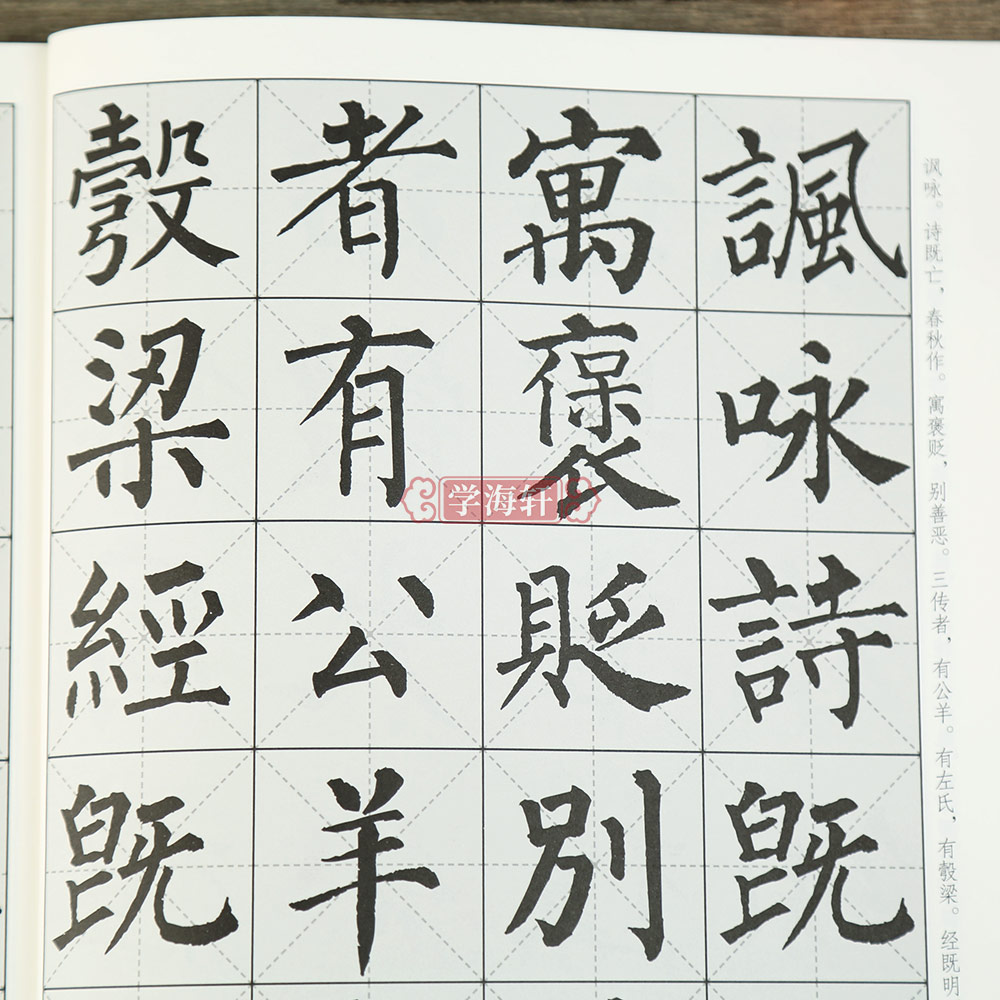 諷咏詩既
寓褒貶別
者有公羊
彀梁經既
讽咏。诗既亡，春秋作。寓褒贬，别善恶。三传者，有公羊。有左氏，有彀梁。经既明
学海轩